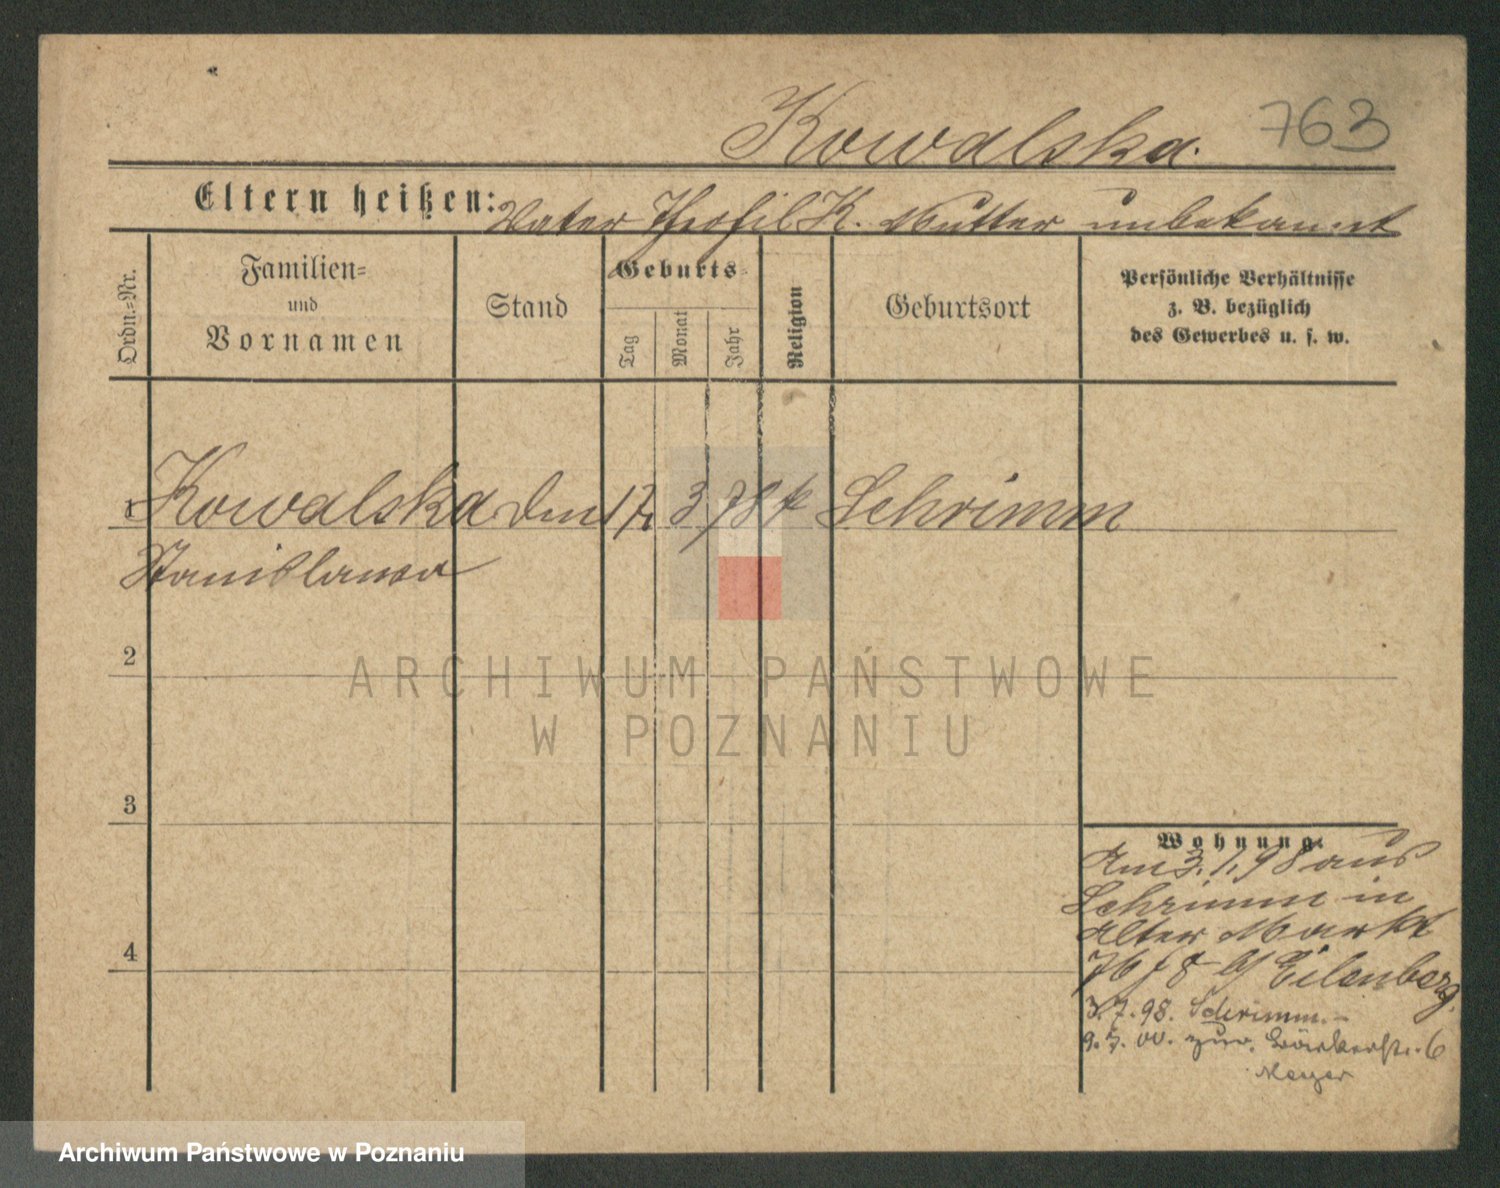 Kowalska. 763
Eltern heißen: Vater Theofil K. Mutter unbekannt
Ordn.-Nr.
Familien-
und
Vornamen
Stand
Geburts-
Tag
Monat
Jahr
Religion
Geburtsort
Persönliche Verhältnisse
z. B. bezüglich
des Gewerbes u. s. w.
1 Kowalska 17. 3 78 k Schrimm
Stanislawa
2
3
4
Wohnung.
Am 3.1.98 aus
Schrimm in
Alter Markt
76 b/ Eilenberg.
3.7.98. Schrimm. –
9.7.00. zur. 6
Meyer
ARCHIWUM PAŃSTWOWE
W POZNANIU
Archiwum Państwowe w Poznaniu